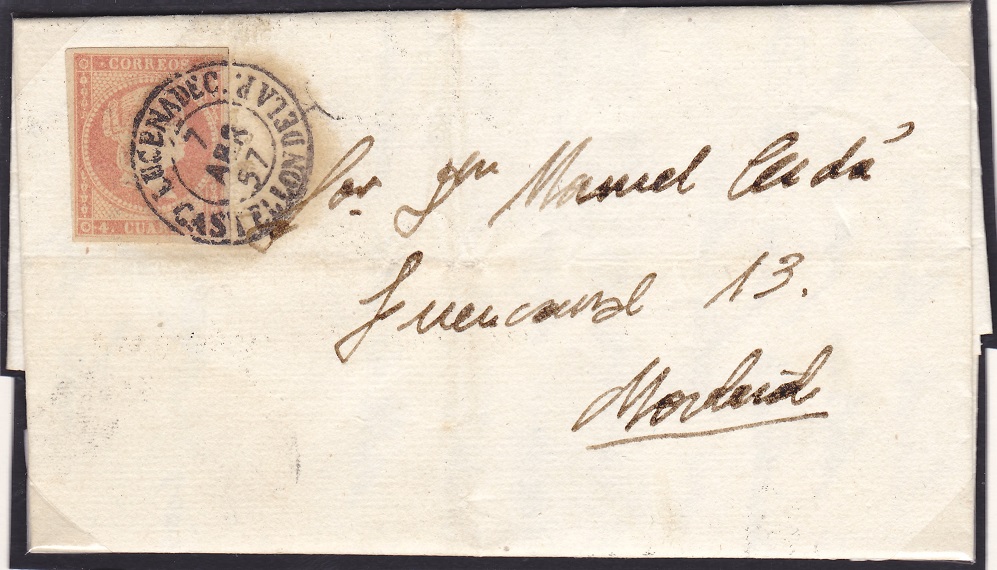 CORREOS
LUCENA DE C.
P. LA DEL
7
ABR
57
CASTELLON
4 CUAR
Sor Dn Manuel Cerdá
Fuencarral 13.
Madrid